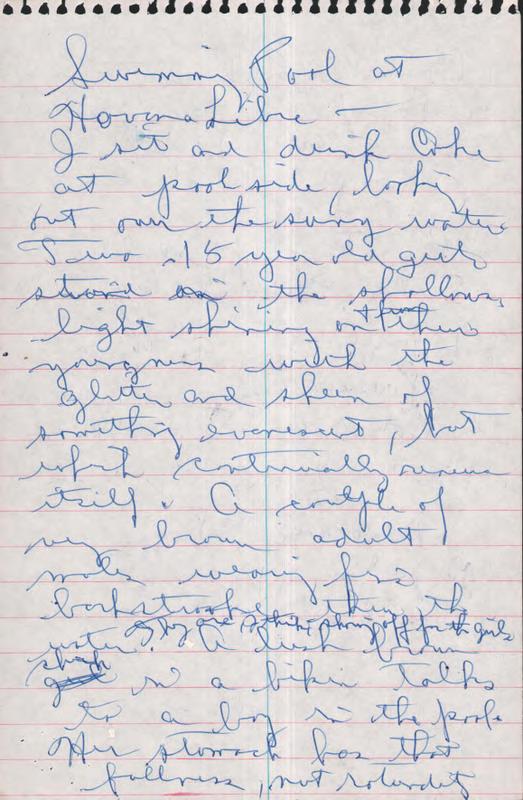 Swimming Pool at
Havana Libre —
I sit and drink Coke
at pool side, looking
out over the sunny water
Two 15 year old girls
stand in the shallows,
light shining on their
youngness with the
glitter and sheen of
something evanescent, but
which continually renews
itself. A couple of
very brown adult
males wearing
backstroke the
water. They are showing off for the girls
A lush brown
in a bikini talks
to a boy in the pool.
Her stomach has that
fullness, not rotundity